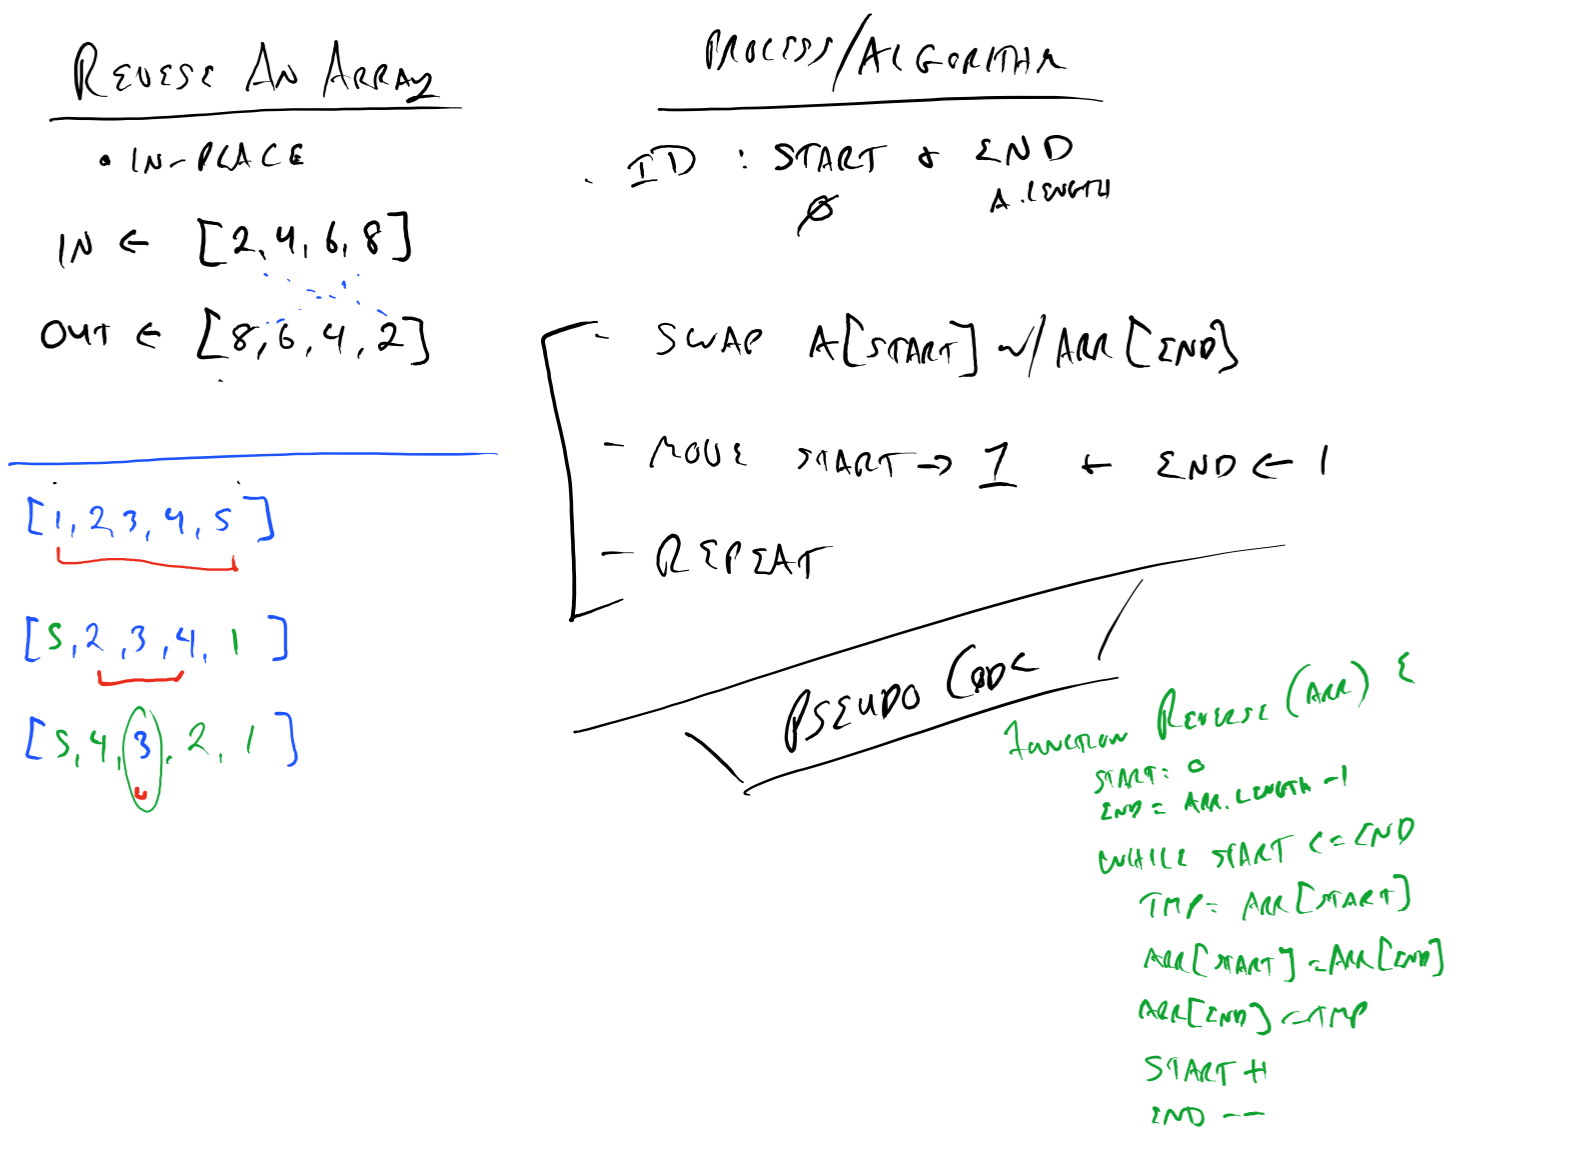 REVESE AN ARRAY
• IN-PLACE
IN ← [2, 4, 6, 8]
OUT ← [8, 6, 4, 2]
[1, 2 3, 4, 5]
[5, 2, 3, 4, 1]
[5, 4, 3, 2, 1]
PROCESS/ALGORITHM
. ID : START & END
0 A.LENGTH
- SWAP A[START] w/ ARR[END]
- MOVE START → 1 + END ← 1
- REPEAT
PSEUDO CODE
FUNCTION REVERSE (ARR) {
START = 0
END = ARR.LENGTH -1
WHILE START <= END
TMP = ARR[START]
ARR[START] = ARR[END]
ARR[END] = TMP
START ++
END --